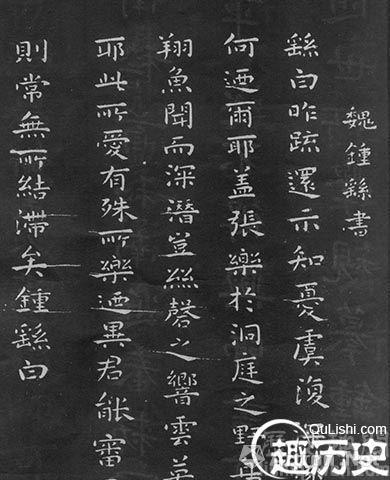 魏鍾繇書
繇白昨疏還示知憂虞復
何迺爾耶蓋張樂於洞庭之野
翔魚聞而深潛豈絲磬之響雲英
耶此所愛有殊所樂迺異君能審
則常無所結滯矣鍾繇白
QuLishi.com
趣历史